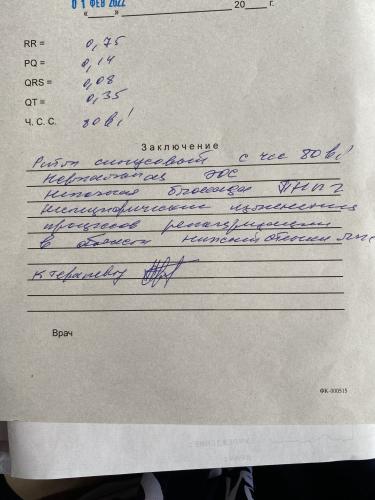 01 ФЕВ 2022
«____» ____________ 20___ г.
RR = 0,75
PQ = 0,14
QRS = 0,08
QT = 0,35
Ч. С. С. 80 в 1'
Заключение
Ритм синусовый с чсс 80 в 1'
ЭОС
Неполная блокада ПНПГ
Неспецифические изменения
процессов реполяризации
в области нижней стенки
к терапевту
Врач
ФК-000515